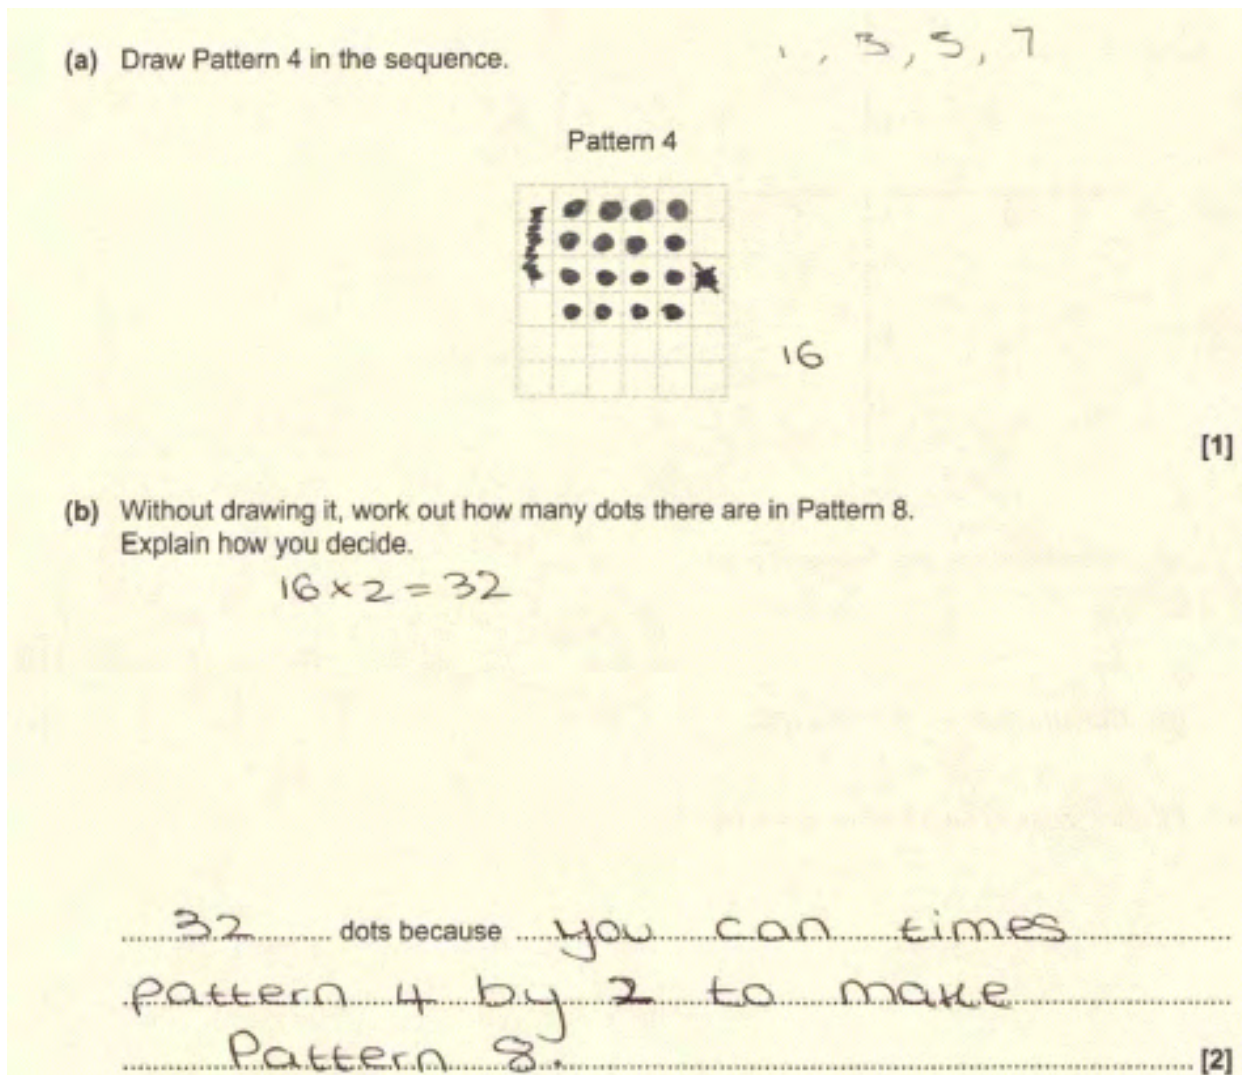 (a) Draw Pattern 4 in the sequence.
1, 3, 5, 7
Pattern 4
16
[1]
(b) Without drawing it, work out how many dots there are in Pattern 8.
Explain how you decide.
16 × 2 = 32
32 dots because you can times
pattern 4 by 2 to make
Pattern 8. [2]